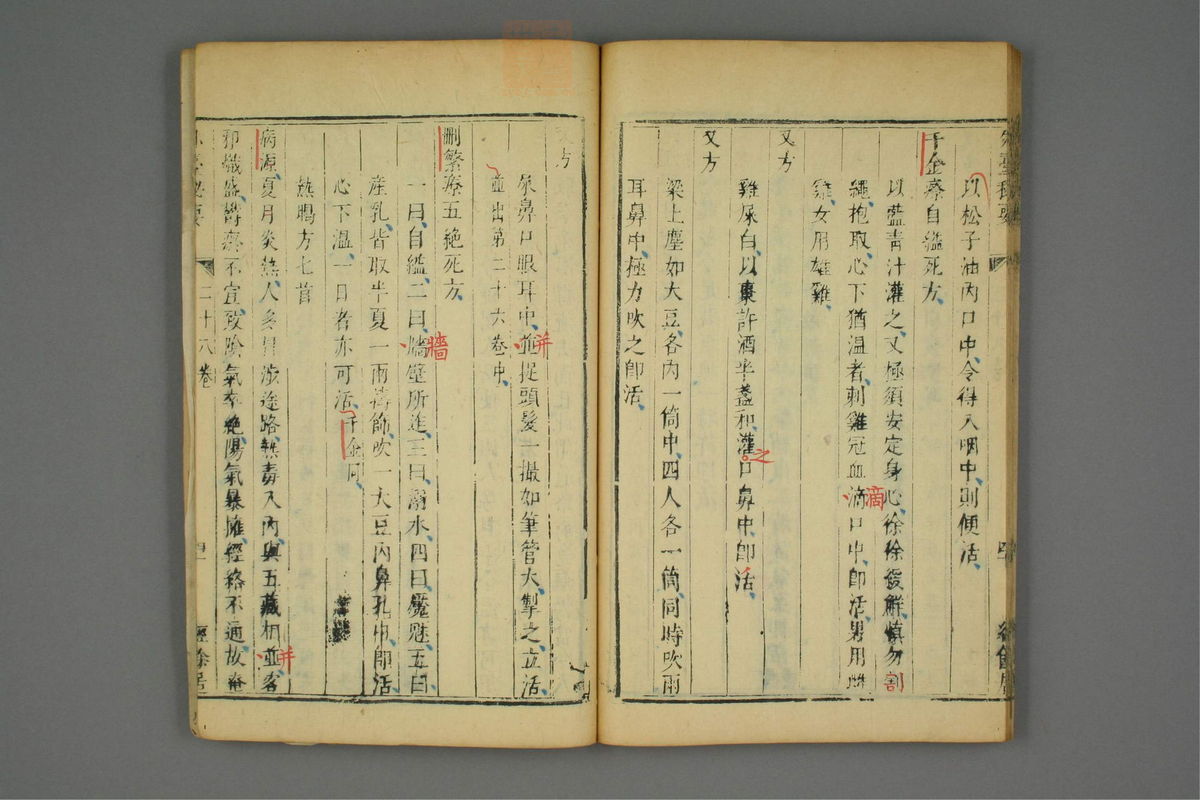 以松子油內口中令得入咽中則便活
千金療自縊死方
以藍青汁灌之又極須安定身心徐徐緩解慎勿割
繩抱取心下猶溫者刺雞冠血滴口中即活男用雌
滴
雞女用雄雞
又方
雞屎白以棗許酒半盞和灌口鼻中即活
之
又方
梁上塵如大豆各內一筒中四人各一筒同時吹兩
耳鼻中極力吹之即活
又方
尿鼻口眼耳中並捉頭髮一撮如筆管大掣之立活
并
並出第二十六卷中
刪繁療五絕死方
一曰自縊二曰墻壁所迮三曰溺水四曰魘魅五曰
牆
產乳皆取半夏一兩擣篩吹一大豆內鼻孔中即活
心下溫一日者亦可活千金同
熱暍方七首
病源夏月炎熱人多冒涉途路熱毒入內與五藏相並客
并
邪熾盛鬱瘀不宣致陰氣卒絕陽氣暴擁經絡不通故奄
二十八卷
經餘居